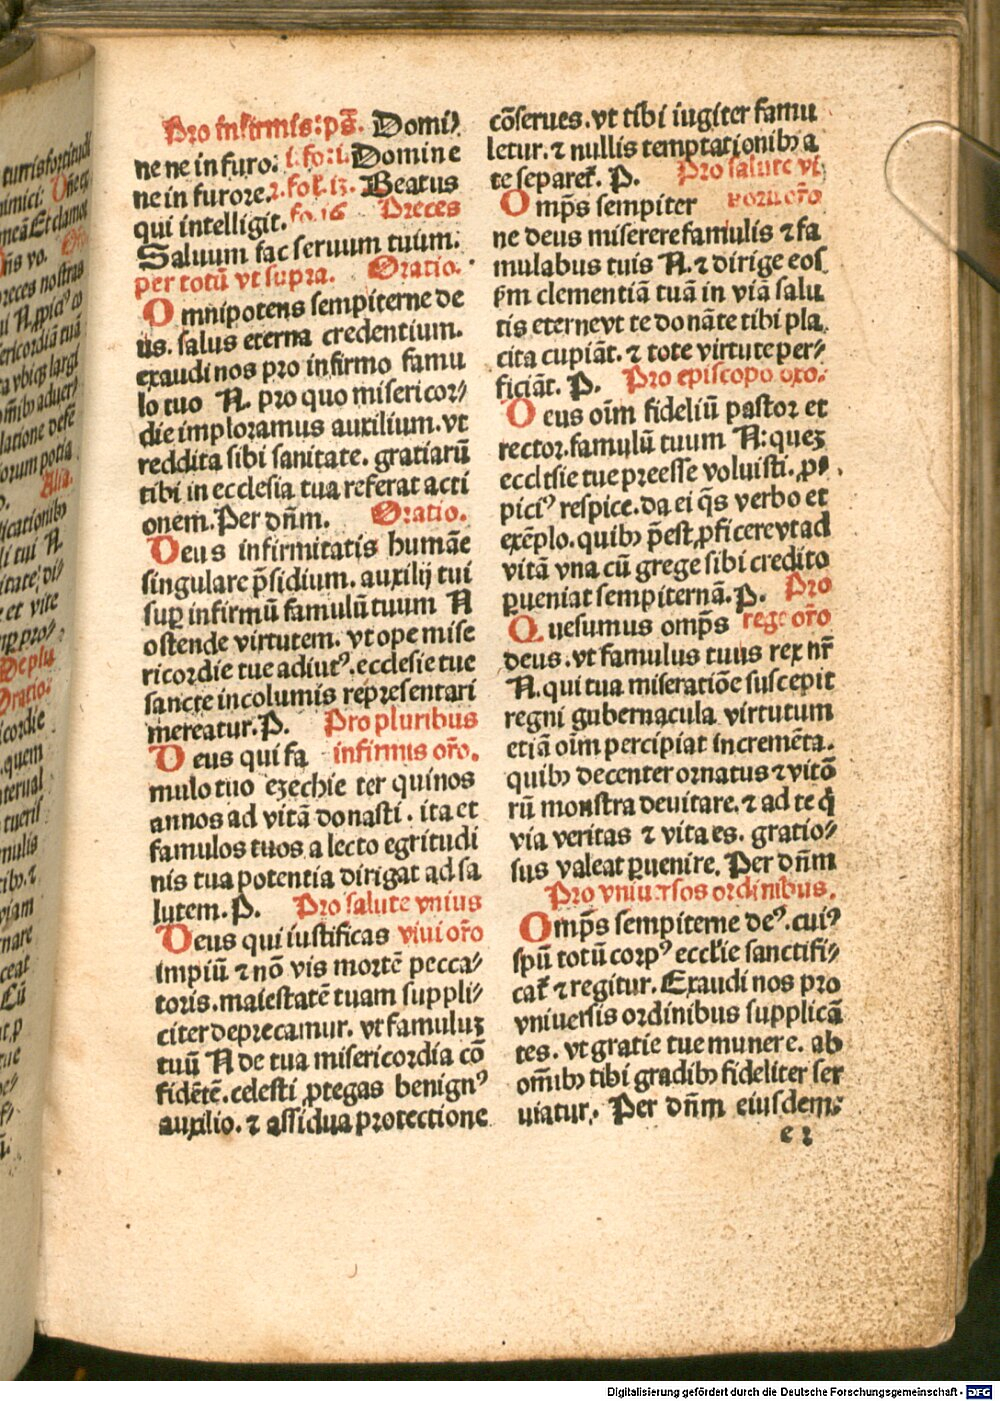 Pro infirmis: ps̄. Domi/
ne ne in furo: i. fo: i. Domine
ne in furore. 2. fol. 13. Beatus
qui intelligit. fo. 16 Preces
Saluum fac seruum tuum:
per totū vt supra. Oratio.
Omnipotens sempiterne de
us. salus eterna credentium.
exaudi nos pro infirmo famu
lo tuo N. pro quo misericor/
die imploramus auxilium. vt
reddita sibi sanitate. gratiarū
tibi in ecclesia tua referat acti
onem. Per dn̄m. Oratio.
Deus infirmitatis humāe
singulare p̄sidium. auxilij tui
suꝑ infirmū famulū tuum N
ostende virtutem. vt ope mise
ricordie tue adiutꝰ. ecclesie tue
sancte incolumis representari
mereatur. P. Pro pluribus
Deus qui fa infirmis or̄o.
mulo tuo ezechie ter quinos
annos ad vitā donasti. ita et
famulos tuos a lecto egritudi
nis tua potentia dirigat ad sa
lutem. P. Pro salute vnius
Deus qui iustificas viui or̄o
impiū ⁊ nō vis mortē pecca/
toris. maiestatē tuam suppli/
citer deprecamur. vt famuluꝫ
tuū N de tua misericordia cō
fidētē. celesti ꝓtegas benignꝰ
auxilio. ⁊ assidua protectione
cōserues. vt tibi iugiter famu
letur. ⁊ nullis temptationibꝫ a
te separet̄. P. Pro salute vi
Omp̄s sempiter uorū or̄o
ne deus miserere famulis ⁊ fa
mulabus tuis N. ⁊ dirige eos
ẜm clementiā tuā in viā salu
tis eterne vt te donāte tibi pla
cita cupiāt. ⁊ tote virtute per/
ficiāt. P. Pro episcopo oro:
Deus oīm fideliū pastor et
rector. famulū tuum N: queꝫ
eccltsie tue preesse voluisti. ꝓ
piciꝰ respice. da ei q̄s verbo et
exēplo. quibꝫ p̄est ꝓficere vt ad
vitā vna cū grege sibi credito
ꝑueniat sempiternā. P. Pro
Quesumus omp̄s rege or̄o
deus. vt famulus tuus rex nr̄
N. qui tua miseratiōe suscepit
regni gubernacula virtutum
etiā oīm percipiat incremēta.
quibꝫ decenter ornatus ⁊ vitō
rū monstra deuitare. ⁊ ad te q̇
via veritas ⁊ vita es. gratio/
sus valeat ꝑuenire. Per dn̄m
Pro vniuersos ordinibus.
Omp̄s sempiterne deꝰ. cuiꝰ
spū totū corpꝰ eccl̄ie sanctifi/
cat̄ ⁊ regitur. Exaudi nos pro
vniuersis ordinibus supplicā
tes. vt gratie tue munere. ab
om̄ibꝫ tibi gradibꝫ fideliter ser
uiatur. Per dn̄m eiusdem:
e 2
Digitalisierung gefördert durch die Deutsche Forschungsgemeinschaft - DFG